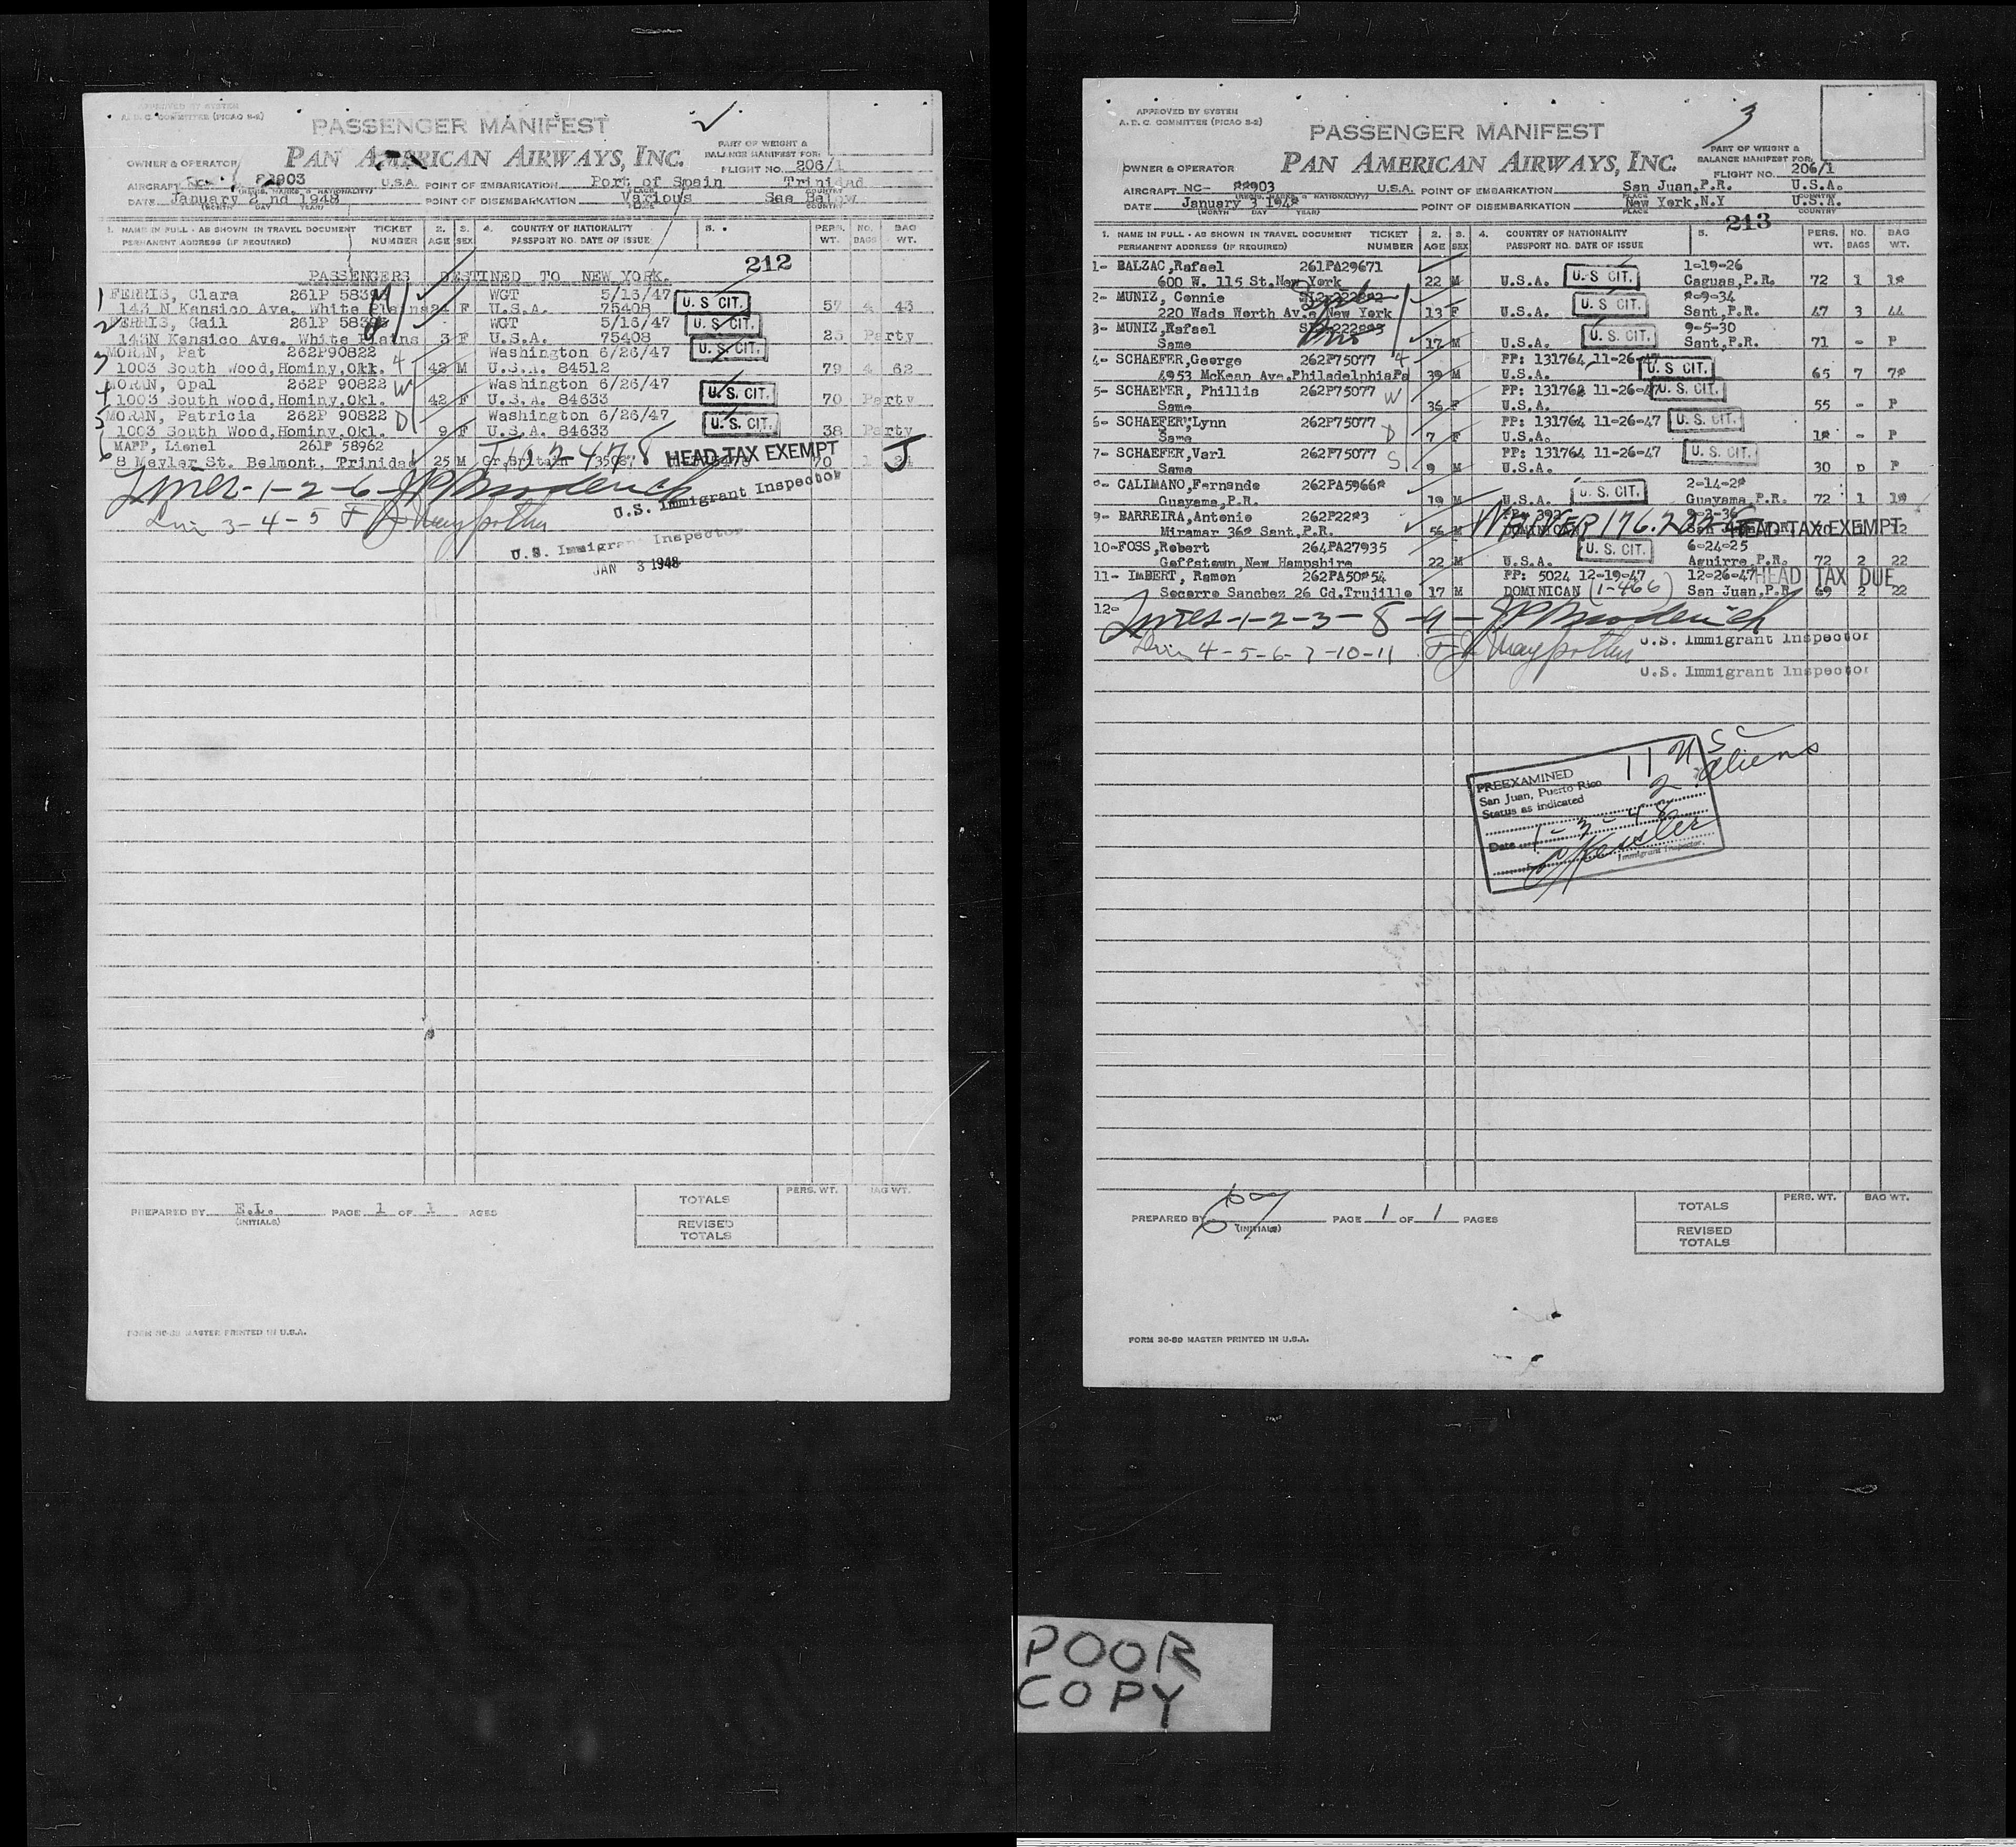 APPROVED BY SYSTEM
A. D. C. COMMITTEE (PICAO S-2)
PASSENGER MANIFEST
PAN AMERICAN AIRWAYS, INC.
PART OF WEIGHT &
BALANCE MANIFEST FOR
OWNER & OPERATOR
FLIGHT NO. 206/1
AIRCRAFT 88903 U.S.A. POINT OF EMBARKATION Port of Spain Trinidad
(REGS. MARKS & NATIONALITY) PLACE COUNTRY
DATE January 2 nd 1948 POINT OF DISEMBARKATION Various See Below
(MONTH DAY YEAR) PLACE COUNTRY
1. NAME IN FULL - AS SHOWN IN TRAVEL DOCUMENT TICKET 2. 3. 4. COUNTRY OF NATIONALITY 5. PERS. NO. BAG
PERMANENT ADDRESS (IF REQUIRED) NUMBER AGE SEX PASSPORT NO. DATE OF ISSUE WT. BAGS WT.
212
PASSENGERS DESTINED TO NEW YORK.
1 FERRIS, Clara 261P WGT 5/13/47 U. S CIT.
143 N Kansico Ave. White Plains F U.S.A. 75408 57 4 43
2 FERRIS, Gail 261P WGT 5/13/47 U. S CIT.
143N Kansico Ave. White Plains 3 F U.S.A. 75408 25 Party
3 MORAN, Pat 262P90822 Washington 6/26/47 U. S. CIT.
1003 South Wood,Hominy,Okl. 42 M U.S.A. 84512 79 4 62
4 MORAN, Opal 262P 90822 W Washington 6/26/47 U. S. CIT.
1003 South Wood,Hominy,Okl. 42 F U.S.A. 84633 70 Party
5 MORAN, Patricia 262P 90822 D Washington 6/26/47 U. S. CIT.
1003 South Wood,Hominy,Okl. 9 F U.S.A. 84633 38 Party
6 MAPP, Lionel 261P 58962 HEAD TAX EXEMPT
8 Meyler St. Belmont, Trinidad 25 M Gr.Britain 70 1
1-2-6- U.S. Immigrant Inspector
3-4-5
U.S. Immigrant Inspector
JAN 3 1948
PREPARED BY E.L. PAGE 1 OF 1 PAGES
(INITIALS)
PERS. WT. BAG WT.
TOTALS
REVISED
TOTALS
FORM 36-89 MASTER PRINTED IN U.S.A.
APPROVED BY SYSTEM
A. D. C. COMMITTEE (PICAO S-2)
3
PASSENGER MANIFEST
PAN AMERICAN AIRWAYS, INC.
PART OF WEIGHT &
BALANCE MANIFEST FOR
OWNER & OPERATOR
FLIGHT NO. 206/1
AIRCRAFT NC- 88903 U.S.A. POINT OF EMBARKATION San Juan,P.R. U.S.A.
(REGS. MARKS & NATIONALITY) PLACE COUNTRY
DATE January 3 1948 POINT OF DISEMBARKATION New York,N.Y U.S.A.
(MONTH DAY YEAR) PLACE COUNTRY
213
1. NAME IN FULL - AS SHOWN IN TRAVEL DOCUMENT TICKET 2. 3. 4. COUNTRY OF NATIONALITY 5. PERS. NO. BAG
PERMANENT ADDRESS (IF REQUIRED) NUMBER AGE SEX PASSPORT NO. DATE OF ISSUE WT. BAGS WT.
1- BALZAC,Rafael 261PA29671 1-19-26
600 W. 115 St.New York 22 M U.S.A. U. S CIT. Caguas,P.R. 72 1 18
2- MUNIZ, Connie 8-9-34
220 Wads Worth Ave New York 13 F U.S.A. U. S CIT. Sant,P.R. 47 3 44
3- MUNIZ,Rafael 9-5-30
Same 17 M U.S.A. U. S. CIT. Sant,P.R. 71 -
4- SCHAEFER,George 262P75077 PP: 131764 11-26-47
4953 McKean Ave.PhiladelphiaPa 39 M U.S.A. U. S CIT. 65 7 78
5- SCHAEFER, Phillis 262P75077 W PP: 131764 11-26-47 U. S. CIT.
Same 36 F U.S.A. 55 - P
6- SCHAEFER,Lynn 262P75077 D PP: 131764 11-26-47 U. S CIT.
Same 7 F U.S.A. 18 - P
7- SCHAEFER,Varl 262P75077 S PP: 131764 11-26-47 U. S CIT.
Same 9 M U.S.A. 30 P
8- CALIMANO,Fernando 262PA59668 2-14-28
Guayama,P.R. 19 M U.S.A. U. S. CIT. Guayama P.R. 72 1 18
9- BARREIRA,Antonio 262P2283 WAIVER 176. HEAD TAX EXEMPT
Miramar 368 Sant,P.R. 56 M
10-FOSS,Robert 264PA27935 U. S. CIT. 6-24-25
Goffstown,New Hampshire 22 M U.S.A. Aguirre,P.R. 72 2 22
11- IMBERT, Ramon 262PA50854 PP: 5024 12-19-47 12-26-47 HEAD TAX DUE
Socorro Sanchez 26 Cd.Trujillo 17 M DOMINICAN (1-466) San Juan,P.R 69 2 22
12-
1-2-3-8-9-
U.S. Immigrant Inspector
4-5-6-7-10-11
U.S. Immigrant Inspector
11 USC
2 aliens
PREEXAMINED
San Juan, Puerto Rico
Status as indicated
Date 1-3-48
Immigrant Inspector.
PREPARED BY PAGE 1 OF 1 PAGES
(INITIALS)
PERS. WT. BAG WT.
TOTALS
REVISED
TOTALS
FORM 36-89 MASTER PRINTED IN U.S.A.
POOR
COPY